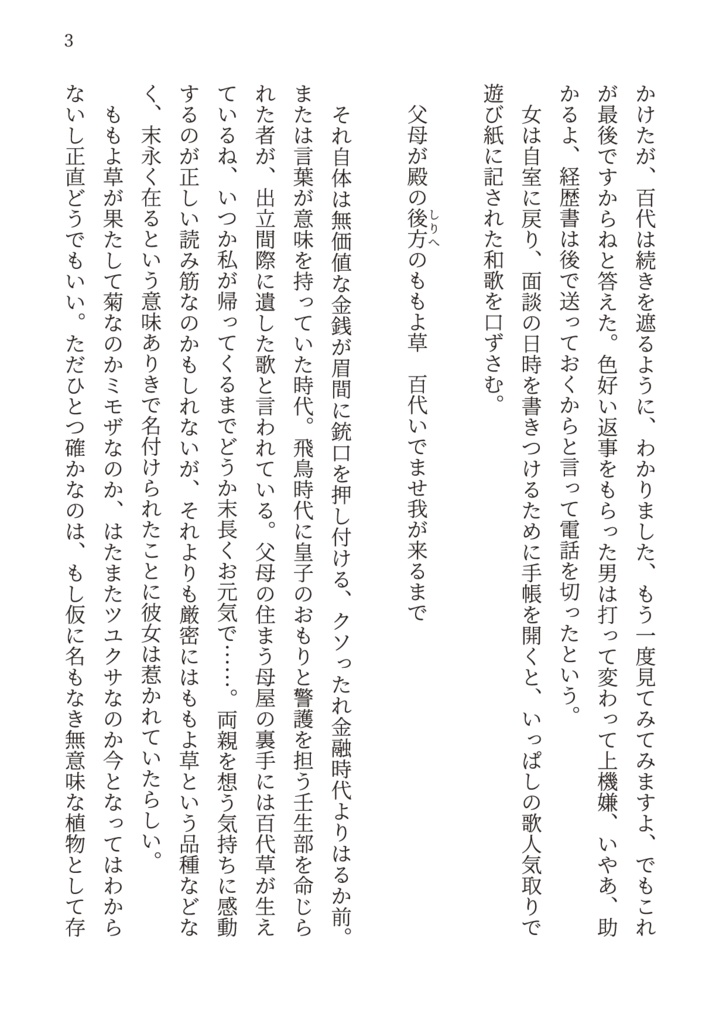 3
かけたが、百代は続きを遮るように、わかりました、もう一度見てみてみますよ、でもこれ
が最後ですからねと答えた。色好い返事をもらった男は打って変わって上機嫌、いやあ、助
かるよ、経歴書は後で送っておくからと言って電話を切ったという。
女は自室に戻り、面談の日時を書きつけるために手帳を開くと、いっぱしの歌人気取りで
遊び紙に記された和歌を口ずさむ。
父母が殿の後方のももよ草　百代いでませ我が来るまで
しりへ
それ自体は無価値な金銭が眉間に銃口を押し付ける、クソったれ金融時代よりはるか前。
または言葉が意味を持っていた時代。飛鳥時代に皇子のおもりと警護を担う壬生部を命じら
れた者が、出立間際に遺した歌と言われている。父母の住まう母屋の裏手には百代草が生え
ているね、いつか私が帰ってくるまでどうか末長くお元気で……。両親を想う気持ちに感動
するのが正しい読み筋なのかもしれないが、それよりも厳密にはももよ草という品種などな
く、末永く在るという意味ありきで名付けられたことに彼女は惹かれていたらしい。
ももよ草が果たして菊なのかミモザなのか、はたまたツユクサなのか今となってはわから
ないし正直どうでもいい。ただひとつ確かなのは、もし仮に名もなき無意味な植物として存